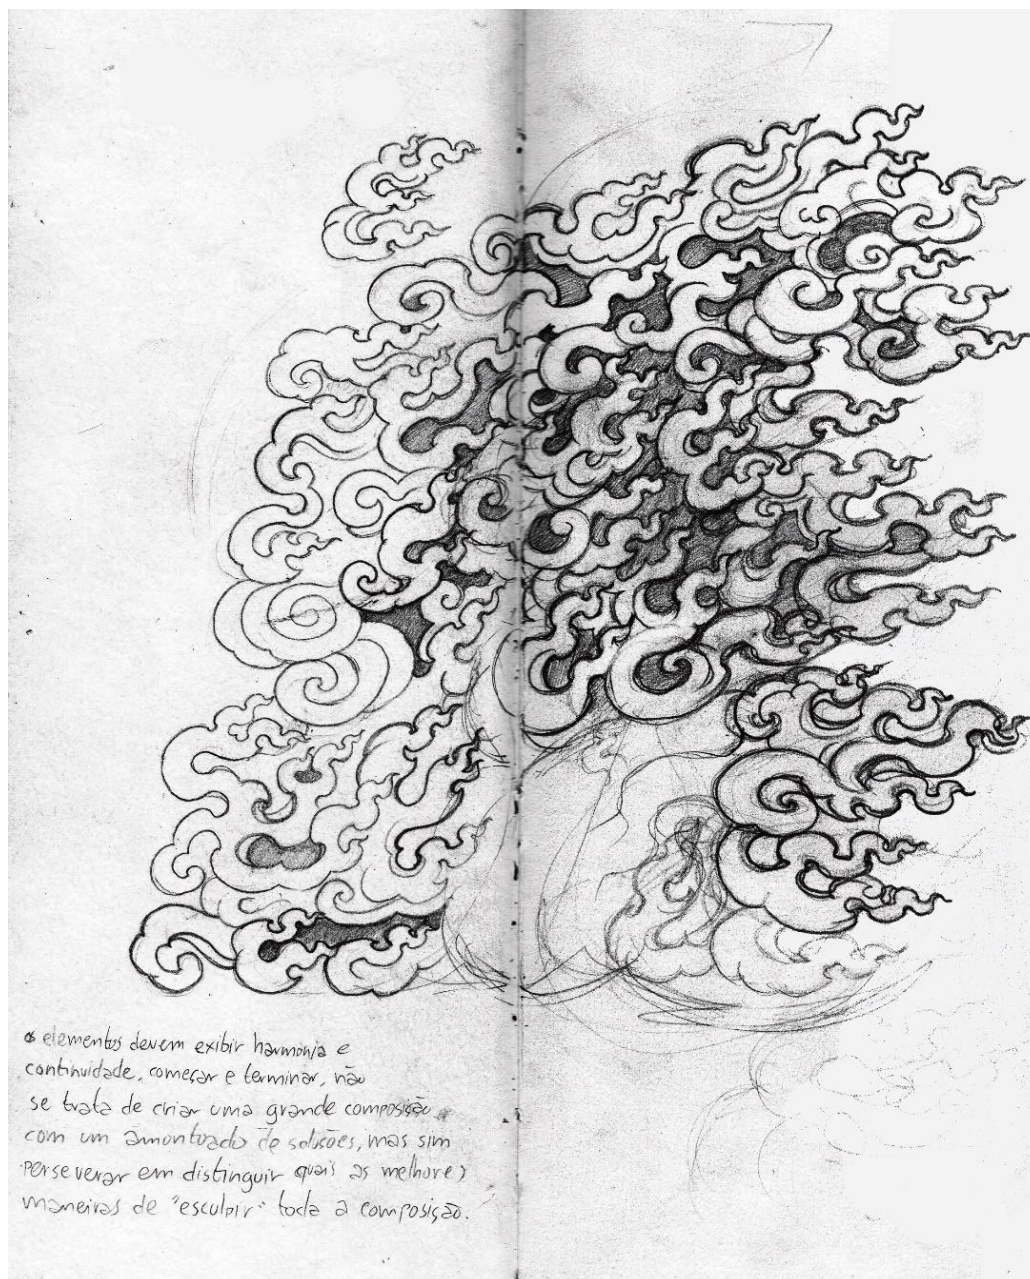 os elementos devem exibir harmonia e
continuidade, começar e terminar, não
se trata de criar uma grande composição
com um amontoado de soluções, mas sim
perseverar em distinguir quais as melhores
maneiras de "esculpir" toda a composição.